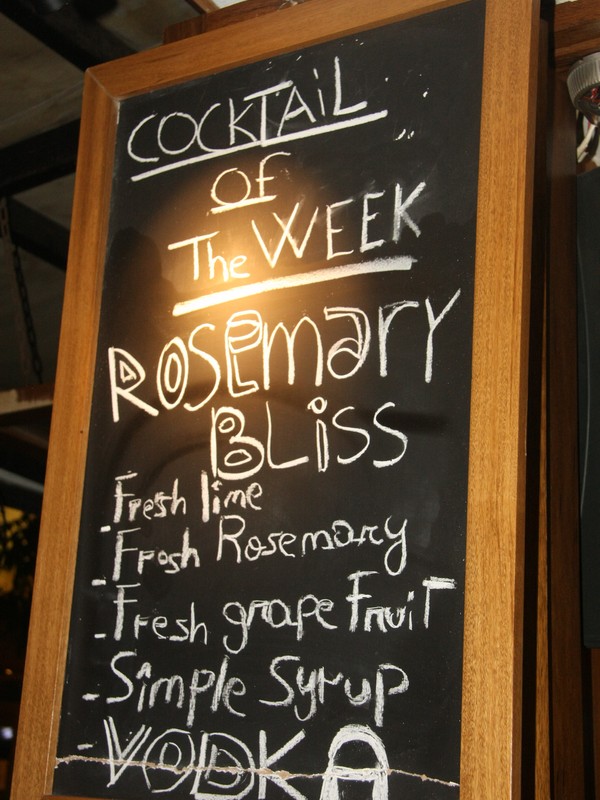 COCKTAiL
OF
The WEEK
ROSEmaRY
BLiSS
- Fresh lime
- Frosh Rosemary
- Fresh grape FruiT
- Simple Syrup
- VODKA